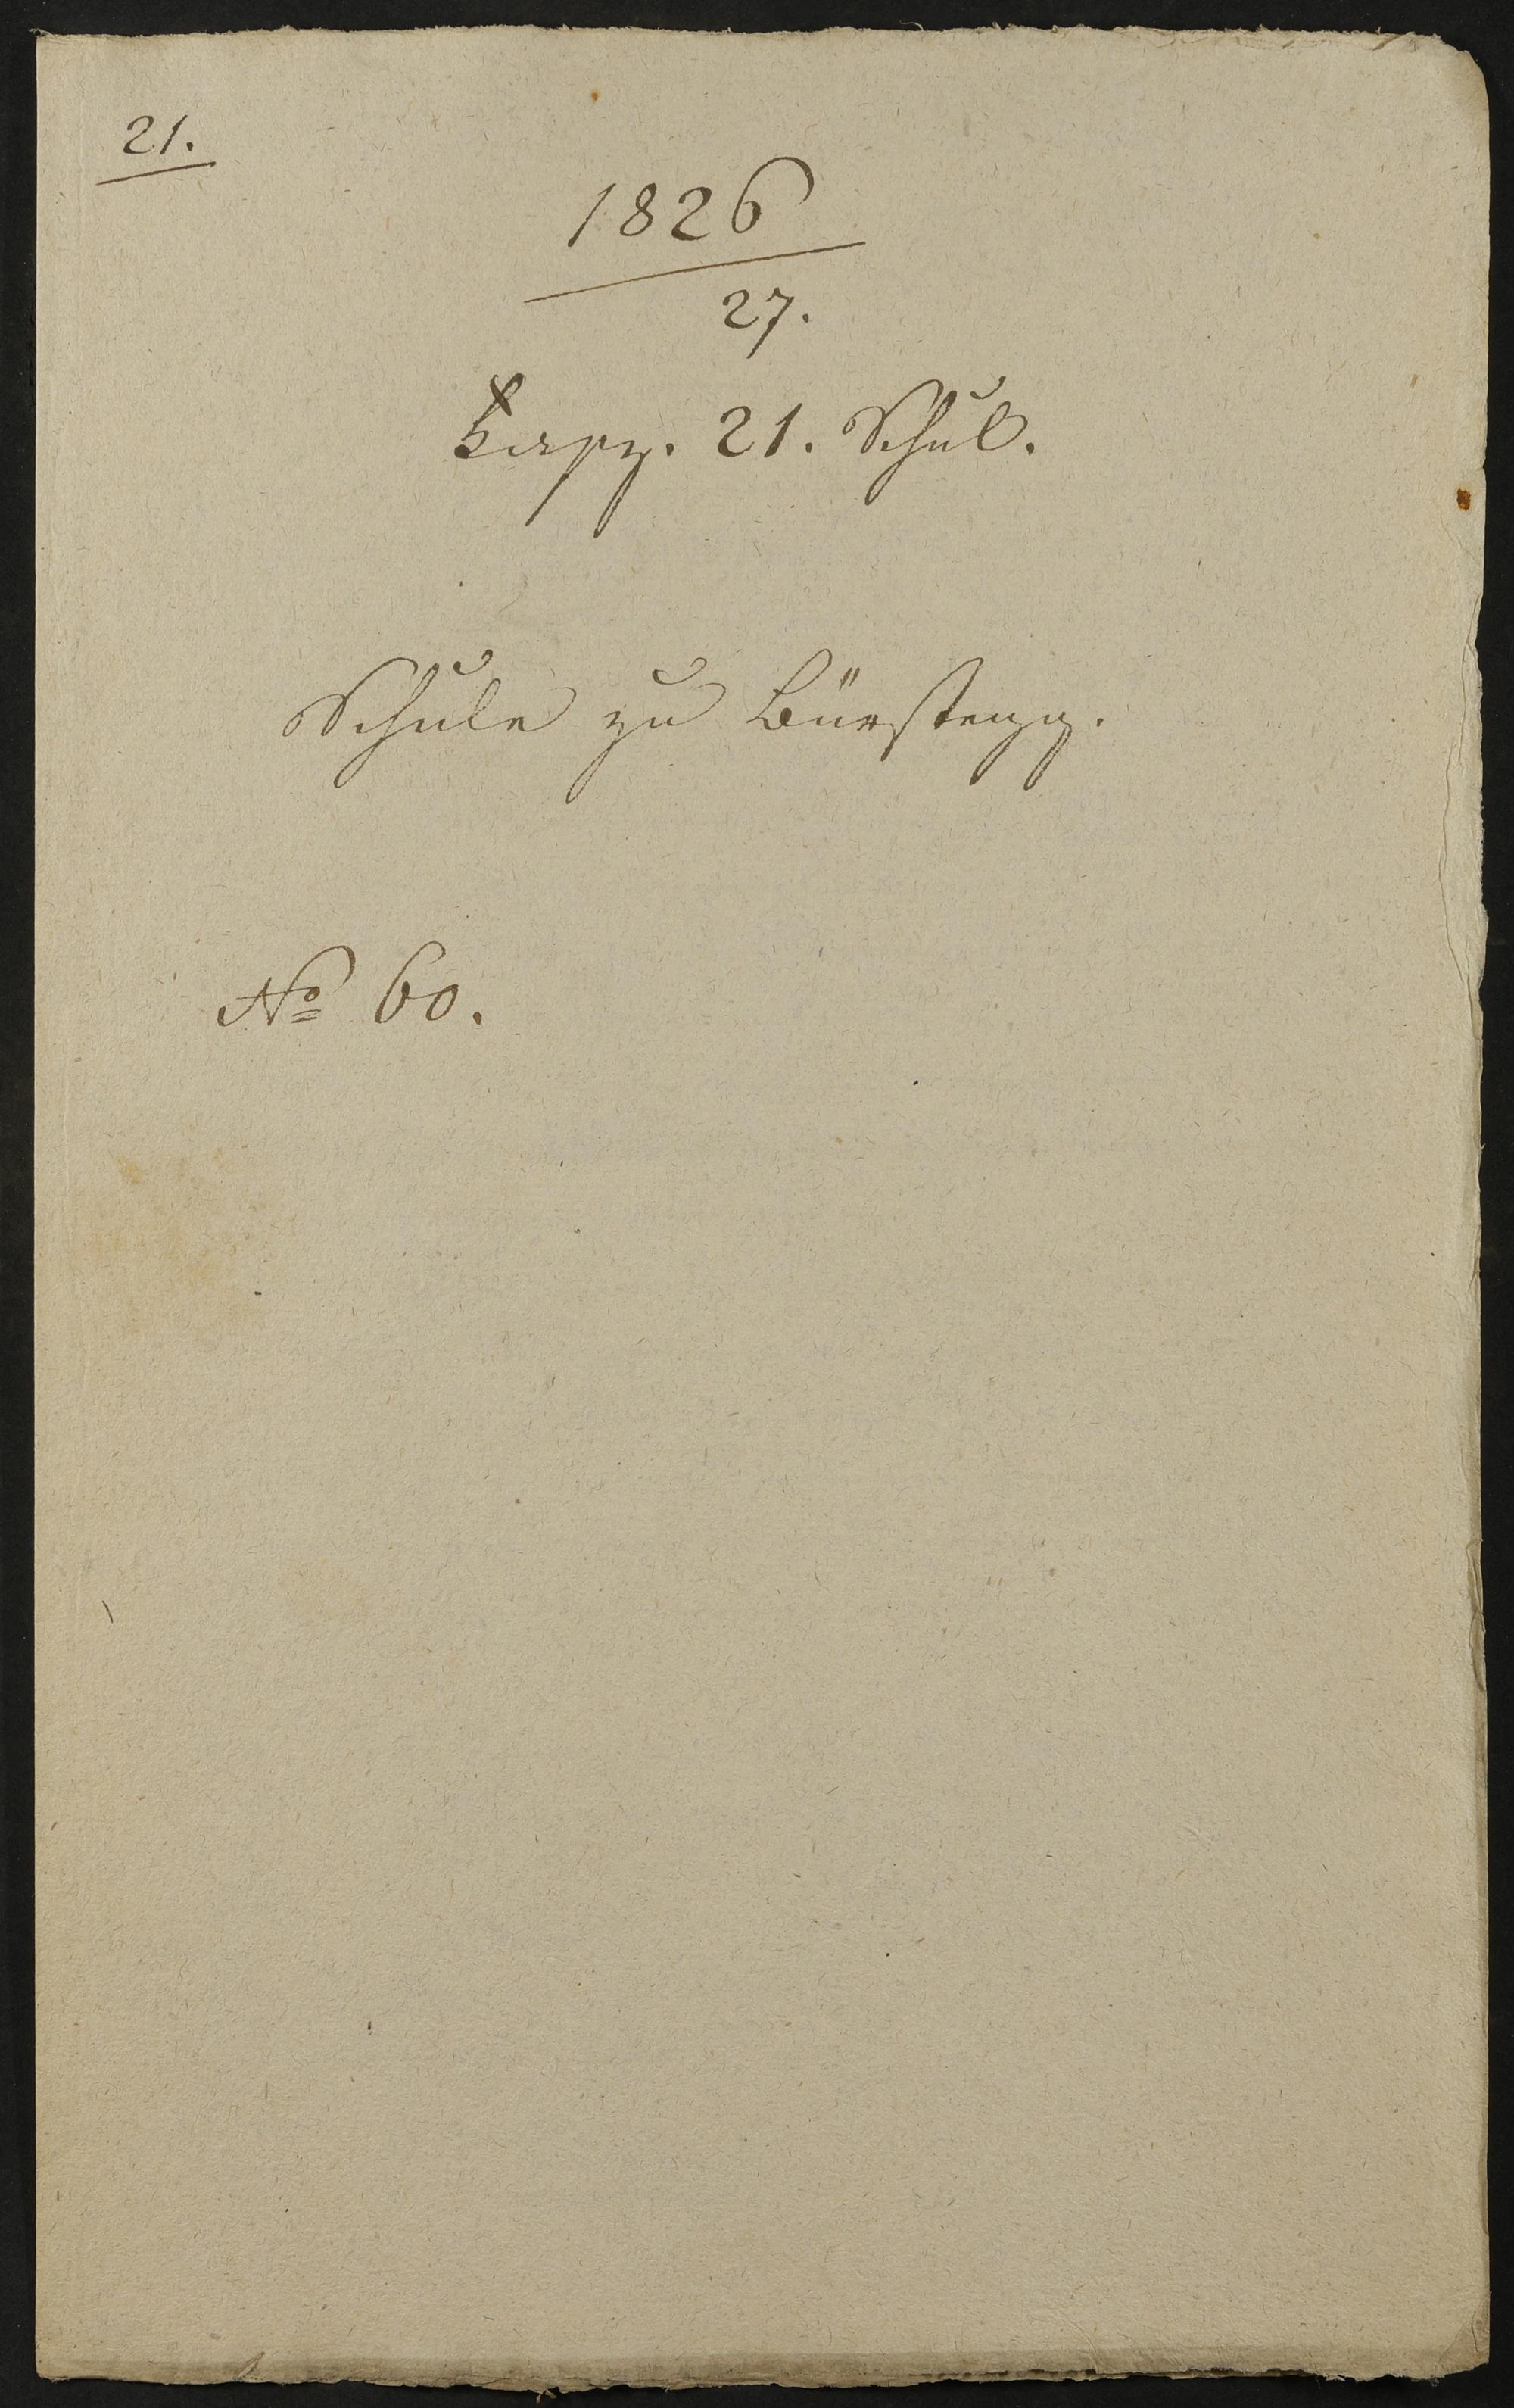 21.
1826
27.
Fasz. 21. Schul.
Schule zu Bürstegg.
No 60.